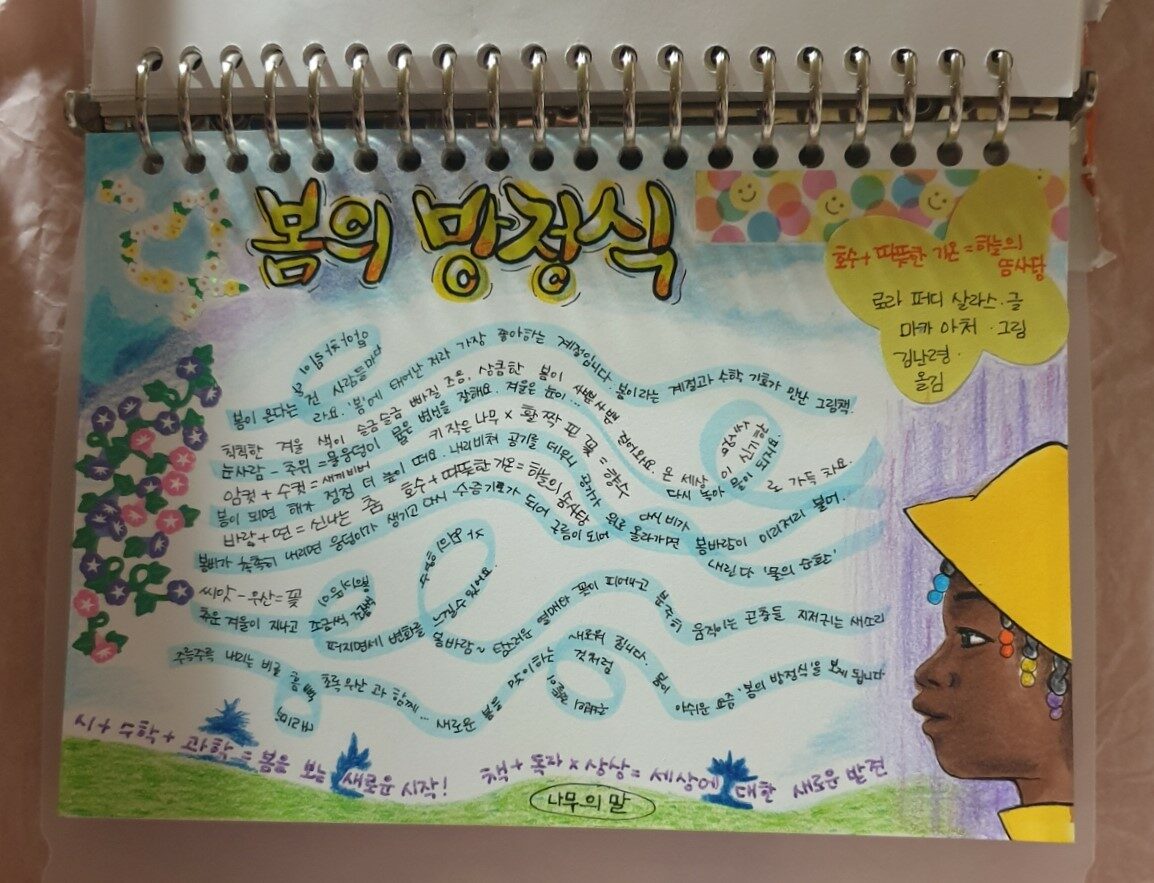 봄의 방정식
호수 + 따뜻한 기온 = 하늘의
솜사탕
로라 퍼디 살라스 · 글
미카 아처 · 그림
김난령 ·
옮김
봄이 온다는 건 사람들마다
태어난 저라 가장 좋아하는 계절입니다. 봄이라는 계절과 수학 기호가 만난 그림책.
칙칙한 겨울 색이 슬금슬금 빠질 즈음, 상큼한 봄이 사뿐사뿐 걸어와요 온 세상
로 가득 차요
눈사람 - 추위 = 물웅덩이 물은 변신을 잘해요. 겨울은 눈이... 다시 녹아 물이 되지요
암컷 + 수컷 = 새끼 비버 키 작은 나무 × 활짝 핀 꽃 = 향수
봄이 되면 해가 점점 더 높이 떠요. 내리비쳐 공기를 데우니 공기가 위로 올라가면 봄바람이 이리저리 불어.
바람 + 연 = 신나는 춤 호수 + 따뜻한 기온 = 하늘의 솜사탕
봄비가 촉촉히 내리면 웅덩이가 생기고 다시 수증기로 되어 구름이 되어 다시 비가 내린단 '물의 순환'
씨앗 - 우산 = 꽃
추운 겨울이 지나고 조금씩 조금씩
퍼지면서 변화를 느낄 수 있어요.
꽃이 피어나고 분주히 움직이는 곤충들 지저귀는 새소리
주룩주룩 내리는 빗길 흠뻑
초록 우산과 함께... 새로운 봄을 맞이하는 것처럼 새로워 집니다.
봄이 아쉬운 요즘 '봄의 방정식'을 보게 됩니다
시 + 수학 + 과학 = 봄을 보는 새로운 시작! 책 + 독자 × 상상 = 세상에 대한 새로운 발견
나무의 말